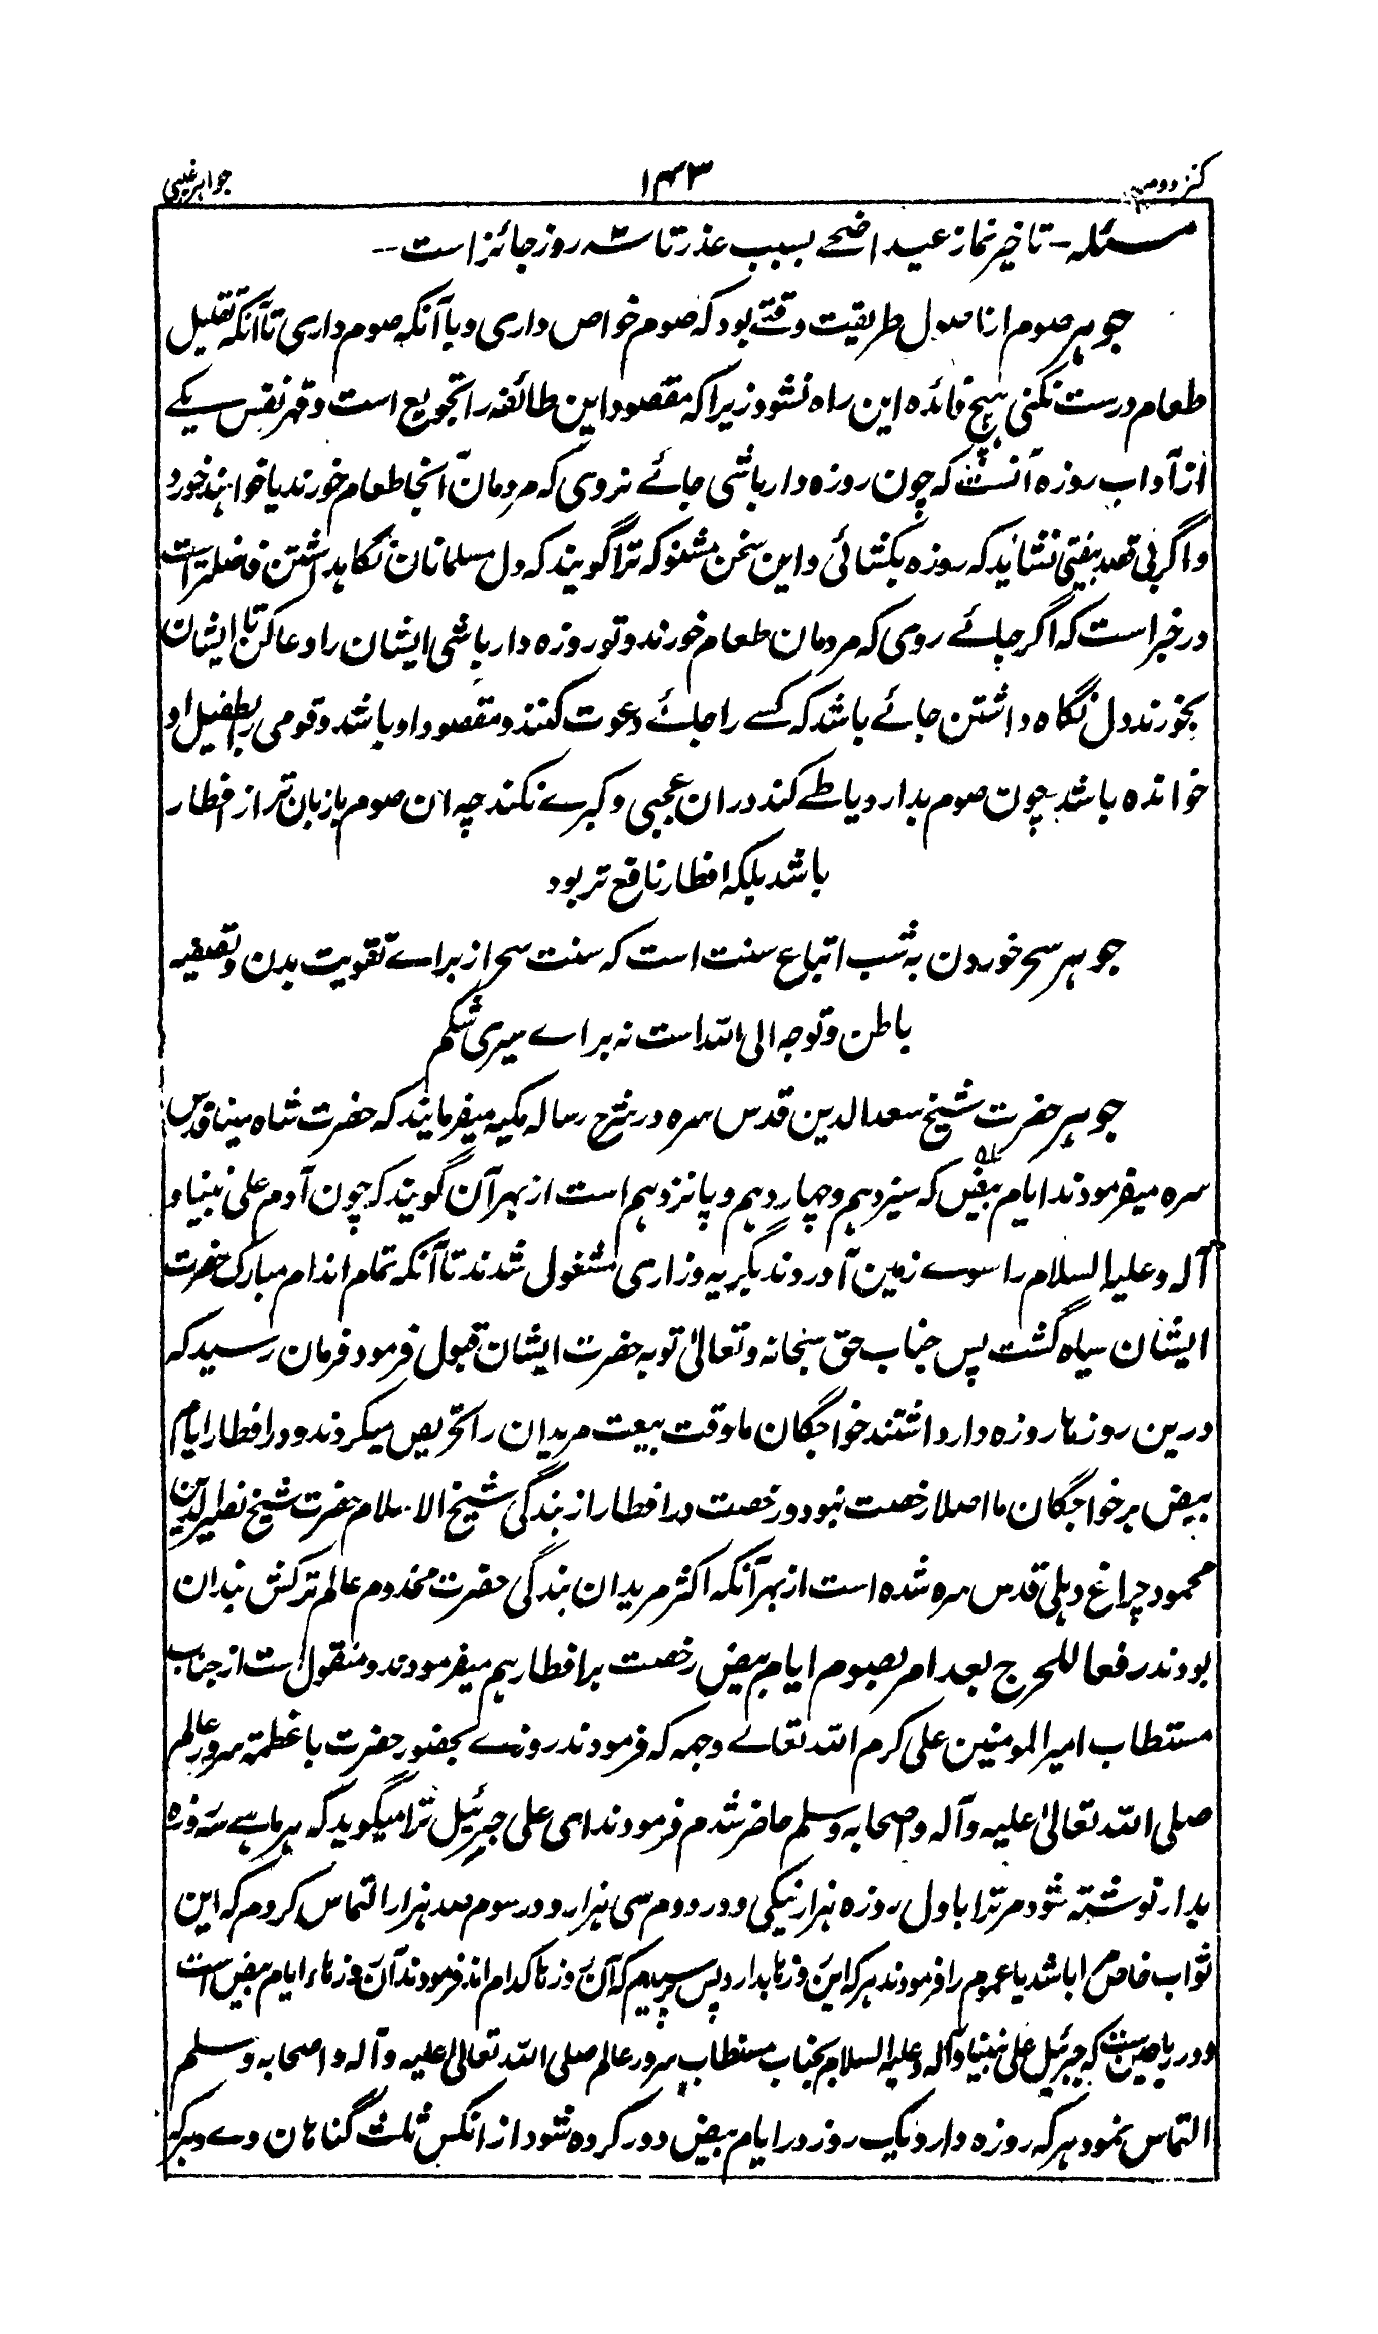 کنز دوم
۱۴۳
جواہر غیبی
مسئلہ - تاخیر نماز عید اضحے بسبب عذر تا سہ روز جائز است --
جوہر صوم از اصول طریقیت وقتے بود کہ صوم خواص داری و با آنکہ صوم داری تا آنکہ تقلیل
طعام درست نکنی ہیچ فائدہ این راہ نشود زیرا کہ مقصود این طائفہ را تجویع است و قہر نفس یکے
از آداب روزہ آنست کہ چون روزہ دار باشی جائے نروی کہ مردمان آنجا طعام خورند یا خواہند خورد
و اگر بی قصد بیفتی نشاید کہ روزہ بکشائی و این سخن مشنو کہ ترا گویند کہ دل مسلمانان نگاہداشتن فاضلتر است
در خبر است کہ اگر جائے روی کہ مردمان طعام خورند و تو روزہ دار باشی ایشان را دعا کن تا ایشان
بخورند دل نگاہ داشتن جائے باشد کہ کسے را جائے دعوت کنند و مقصود او باشد و قومی را بطفیل او
خواندہ باشد چون صوم بدارد یا طے کند دران عجبی و کبرے نکند چہ ان صوم بازبان تر از افطار
باشد بلکہ افطار نافع تر بود
جوہر سحر خوردن بہ شب اتباع سنت است کہ سنت سحر از براے تقویت بدن و تصفیہ
باطن و توجہ الی اللہ است نہ براے سیری شکم
جوہر حضرت شیخ سعد الدین قدس سرہ در شرح رسالہ مکیہ میفرمایند کہ حضرت شاہ مینا قدس
سرہ میفرمودند ایام بیض کہ سیزدہم و چہاردہم و پانزدہم است از بہر آن گویند کہ چون آدم علی نبینا و
آلہ و علیہ السلام را سوے زمین آوردند بگریہ و زاری مشغول شدند تا آنکہ تمام اندام مبارک حضرت
ایشان سیاہ گشت پس جناب حق سبحانہ و تعالیٰ توبہ حضرت ایشان قبول فرمود فرمان رسید کہ
درین روزہا روزہ دار داشتند خواجگان ما وقت بیعت مریدان را تحریص میکردند و در افطار ایام
بیض بر خواجگان ما اصلا رخصت نبود و رخصت در افطار از بندگی شیخ الاسلام حضرت شیخ نصیر الدین
محمود چراغ دہلی قدس سرہ شدہ است از بہر آنکہ اکثر مریدان بندگی حضرت مخدوم عالم ترکش بندان
بودند رفعا للحرج بعد امر بصوم ایام بیض رخصت بر افطار ہم میفرمودند و منقول ست از جناب
مستطاب امیر المومنین علی کرم اللہ تعالے وجہہ کہ فرمودند روزے بحضور حضرت با عظمتہ سرور عالم
صلی اللہ تعالیٰ علیہ و آلہ و اصحابہ و سلم حاضر شدم فرمودند ای علی جبرئیل ترا میگوید کہ ہر ماہے سہ روزہ
بدار نوشتہ شود مر ترا باول روزہ ہزار نیکی و در دوم سی ہزار و در سوم صد ہزار التماس کردم کہ این
ثواب خاص مرا باشد یا عموم را فرمودند ہر کہ این روزہا بدارد پس پرسیدم کہ آن روزہا کدام اند فرمودند آن روزہاء ایام بیض است
و در ریاحین ست کہ جبرئیل علی نبینا و آلہ و علیہ السلام بجناب مستطاب سرور عالم صلی اللہ تعالیٰ علیہ و آلہ و اصحابہ و سلم
التماس نمود ہر کہ روزہ دارد یک روز در ایام بیض دور کردہ شود از انکس ثلث گناہان وے و ہر کہ